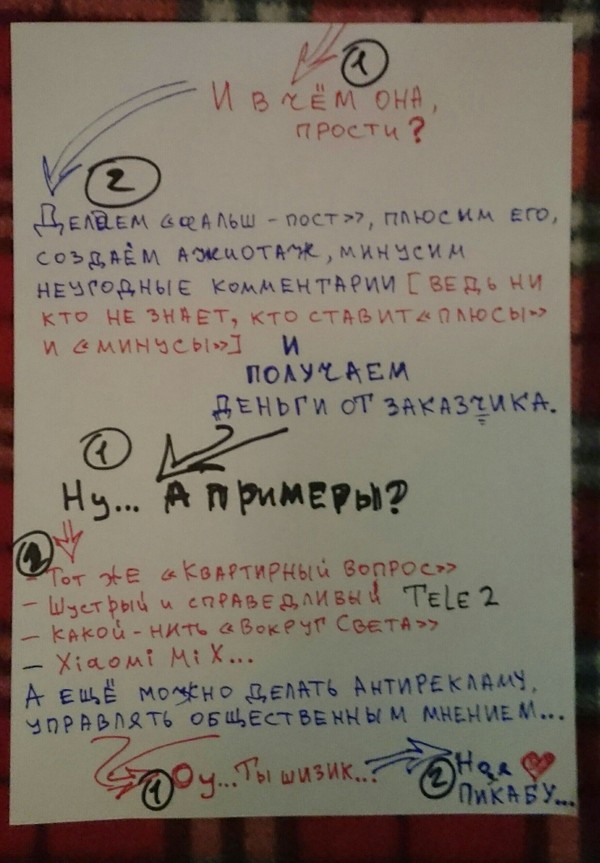 1
И В ЧЁМ ОНА,
ПРОСТИ?
2
ДЕЛАЕМ «ФАЛЬШ - ПОСТ», ПЛЮСИМ ЕГО,
СОЗДАЁМ АЖИОТАЖ, МИНУСИМ
НЕУГОДНЫЕ КОММЕНТАРИИ [ВЕДЬ НИ
КТО НЕ ЗНАЕТ, КТО СТАВИТ «ПЛЮСЫ»
И «МИНУСЫ»] И
ПОЛУЧАЕМ
ДЕНЬГИ ОТ ЗАКАЗЧИКА.
1
Ну... А ПРИМЕРЫ?
2
- Тот ЖЕ «КВАРТИРНЫЙ ВОПРОС»
- Шустрый и СПРАВЕДЛИВЫЙ TELE 2
- КАКОЙ-НИТЬ «ВОКРУГ СВЕТА»
- Xiaomi Mi X...
А ЕЩЁ МОЖНО ДЕЛАТЬ АНТИРЕКЛАМУ,
УПРАВЛЯТЬ ОБЩЕСТВЕННЫМ МНЕНИЕМ...
1 Оу... Ты шизик... 2 Ндя
ПИКАБУ...